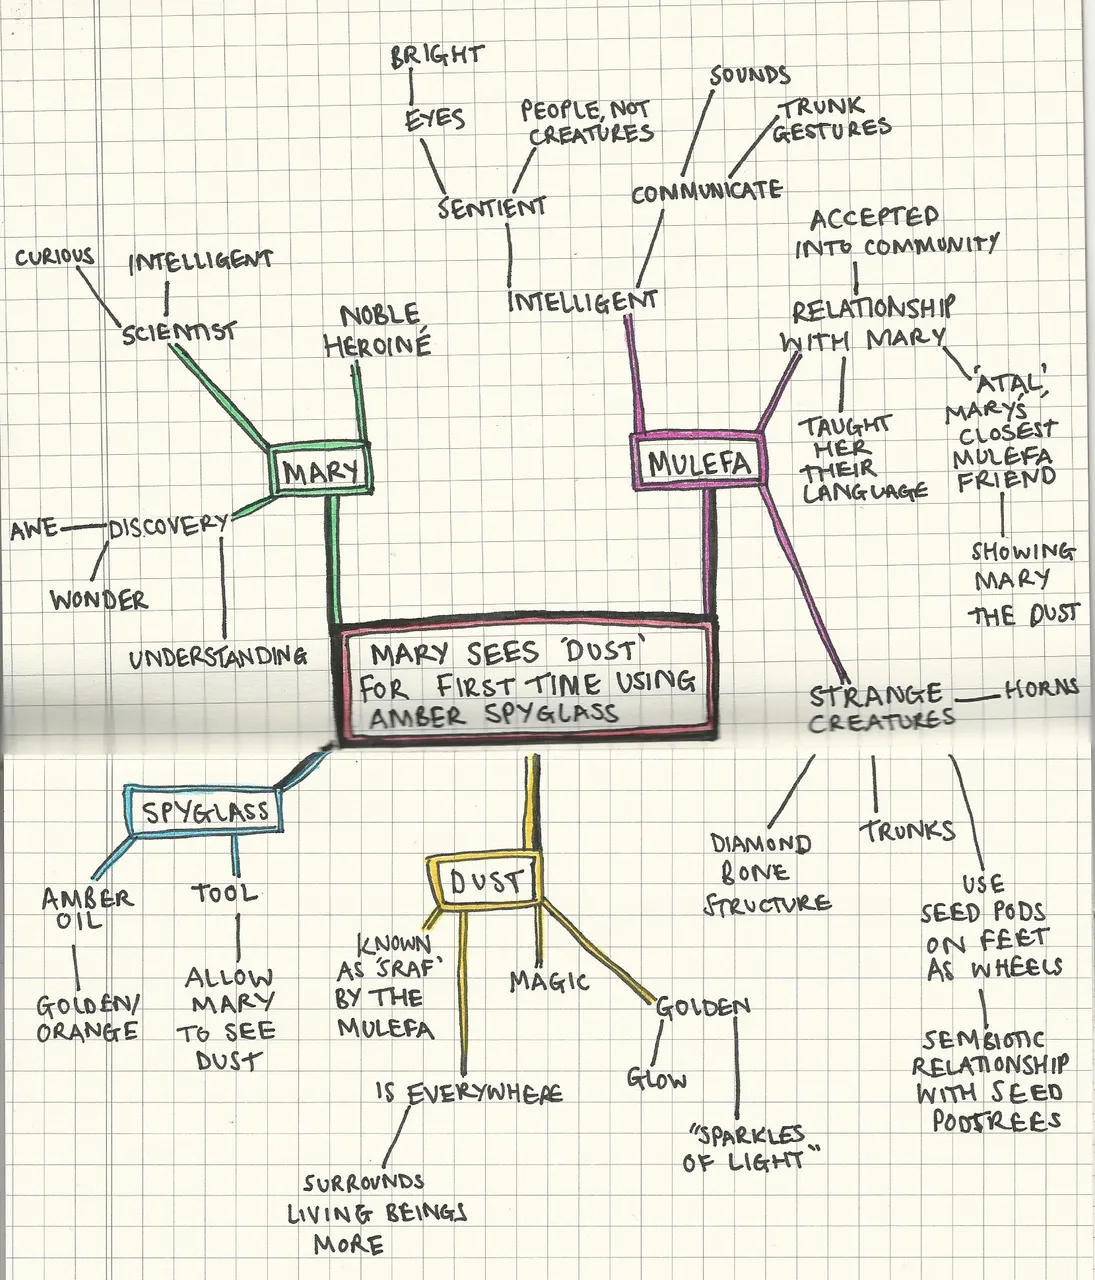 BRIGHT
EYES
PEOPLE, NOT
CREATURES
SENTIENT
SOUNDS
TRUNK
GESTURES
COMMUNICATE
INTELLIGENT
ACCEPTED
INTO COMMUNITY
RELATIONSHIP
WITH MARY
'ATAL',
MARY'S
CLOSEST
MULEFA
FRIEND
SHOWING
MARY
THE DUST
TAUGHT
HER
THEIR
LANGUAGE
MULEFA
CURIOUS
INTELLIGENT
SCIENTIST
NOBLE
HEROINÉ
MARY
AWE
DISCOVERY
WONDER
UNDERSTANDING
MARY SEES 'DUST'
FOR FIRST TIME USING
AMBER SPYGLASS
STRANGE
CREATURES
HORNS
DIAMOND
BONE
STRUCTURE
TRUNKS
USE
SEED PODS
ON FEET
AS WHEELS
SEMBIOTIC
RELATIONSHIP
WITH SEED
PODTREES
SPYGLASS
AMBER
OIL
GOLDEN/
ORANGE
TOOL
ALLOW
MARY
TO SEE
DUST
DUST
KNOWN
AS 'SRAF'
BY THE
MULEFA
IS EVERYWHERE
SURROUNDS
LIVING BEINGS
MORE
MAGIC
GOLDEN
GLOW
"SPARKLES
OF LIGHT"